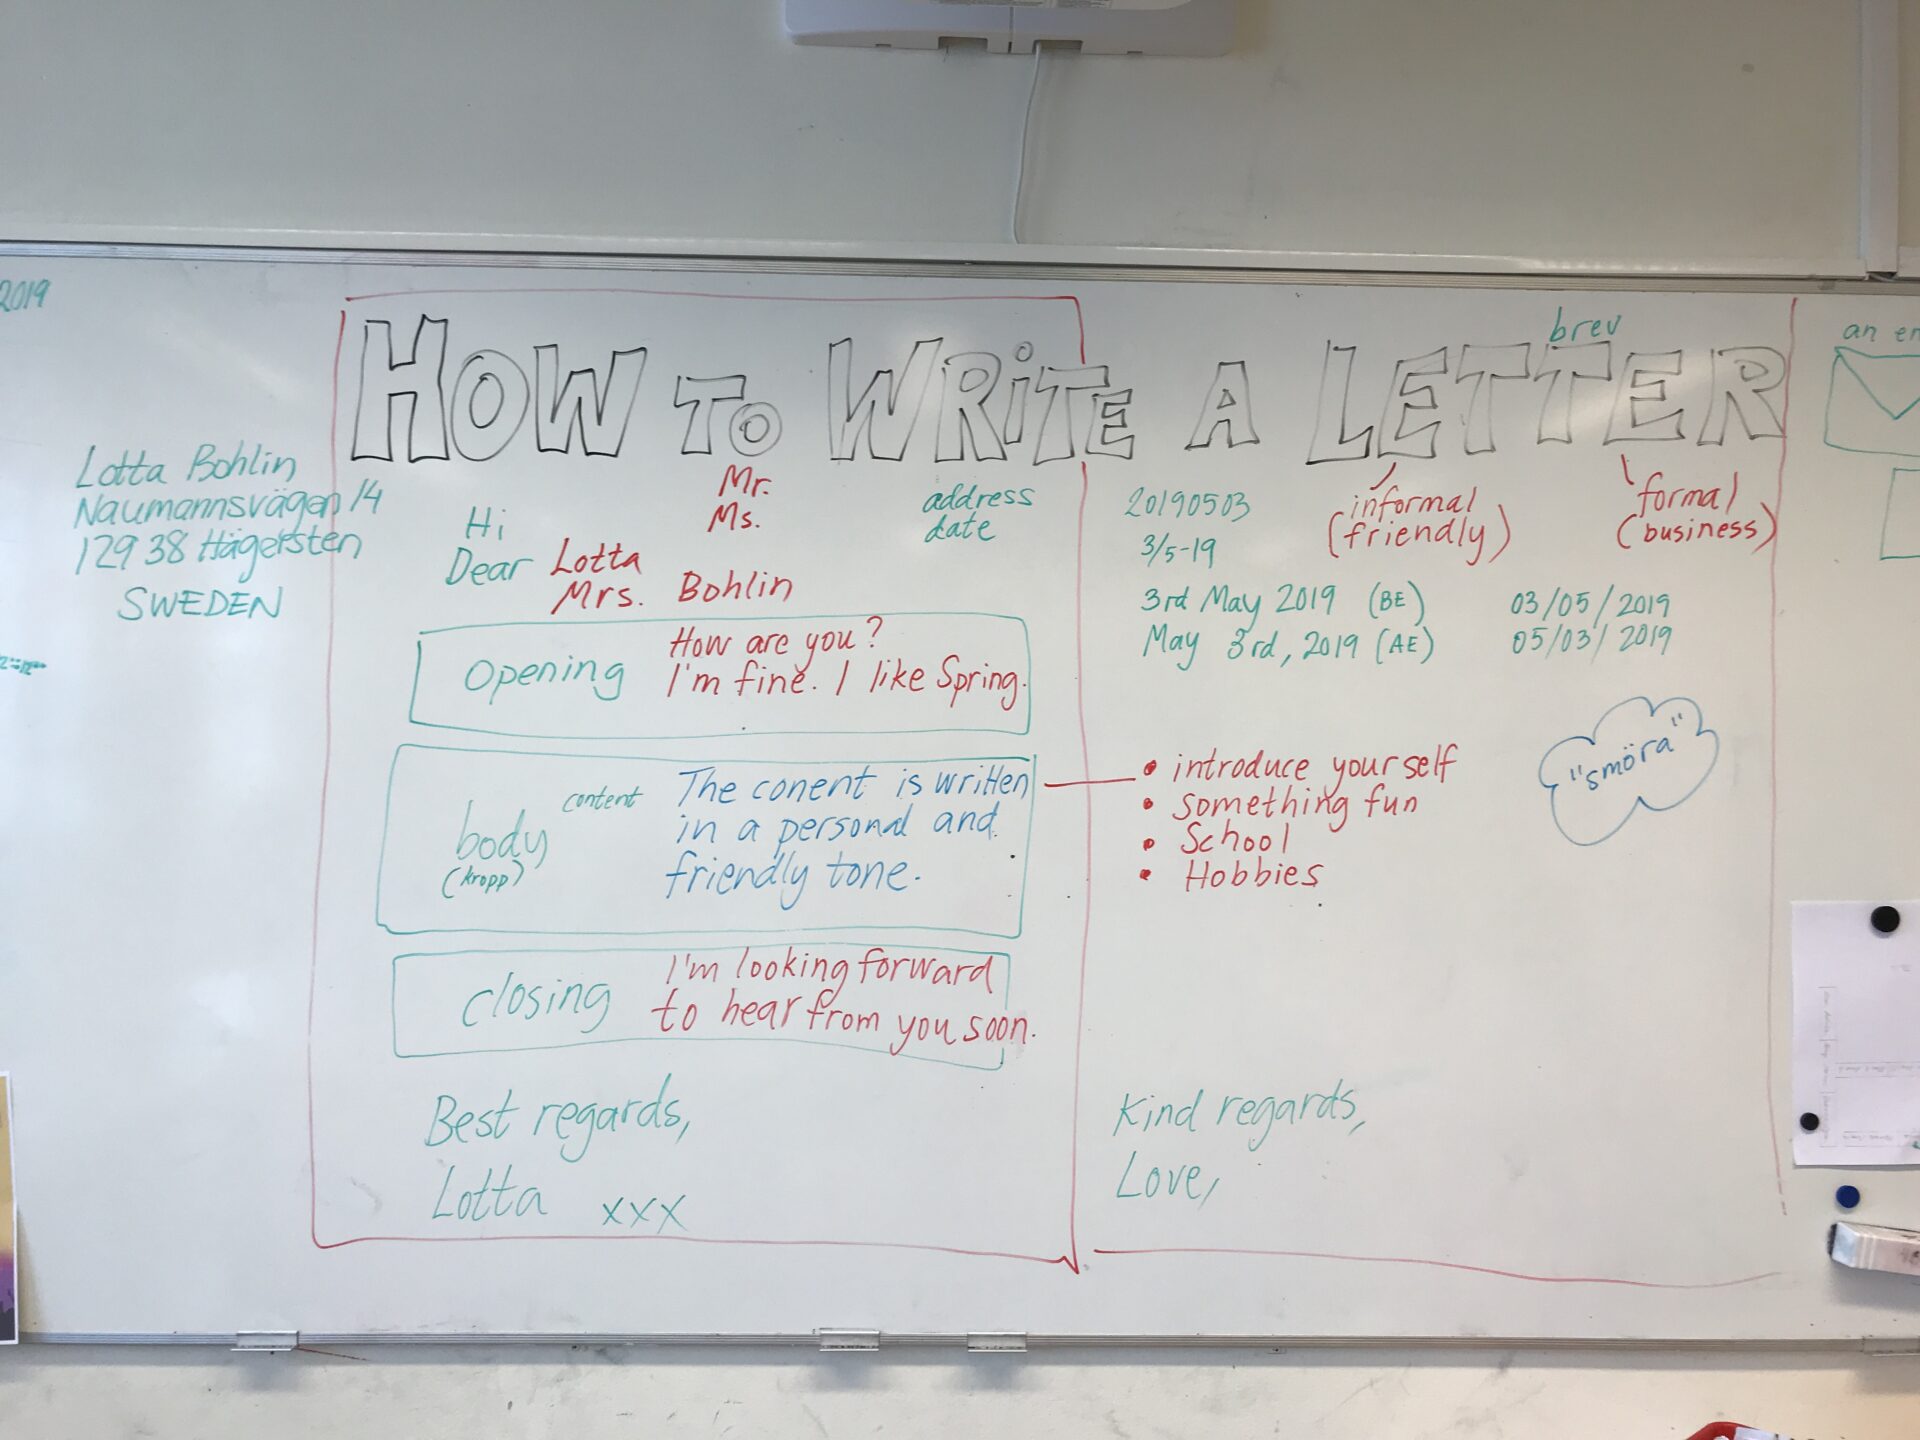 2019
brev
an
HOW TO WRITE A LETTER
Lotta Bohlin
Naumannsvägen 14
129 38 Hägersten
SWEDEN
Mr.
Ms.
Hi
Dear Lotta
Mrs. Bohlin
address
date
20190503
3/5-19
informal
(friendly)
formal
(business)
3rd May 2019 (BE) 03/05/2019
May 3rd, 2019 (AE) 05/03/2019
opening
How are you?
I'm fine. I like Spring.
body
(kropp)
content
The conent is written
in a personal and
friendly tone.
• introduce yourself
• something fun
• School
• Hobbies
"smöra"
closing
I'm looking forward
to hear from you soon.
Best regards,
Lotta xxx
Kind regards,
Love,